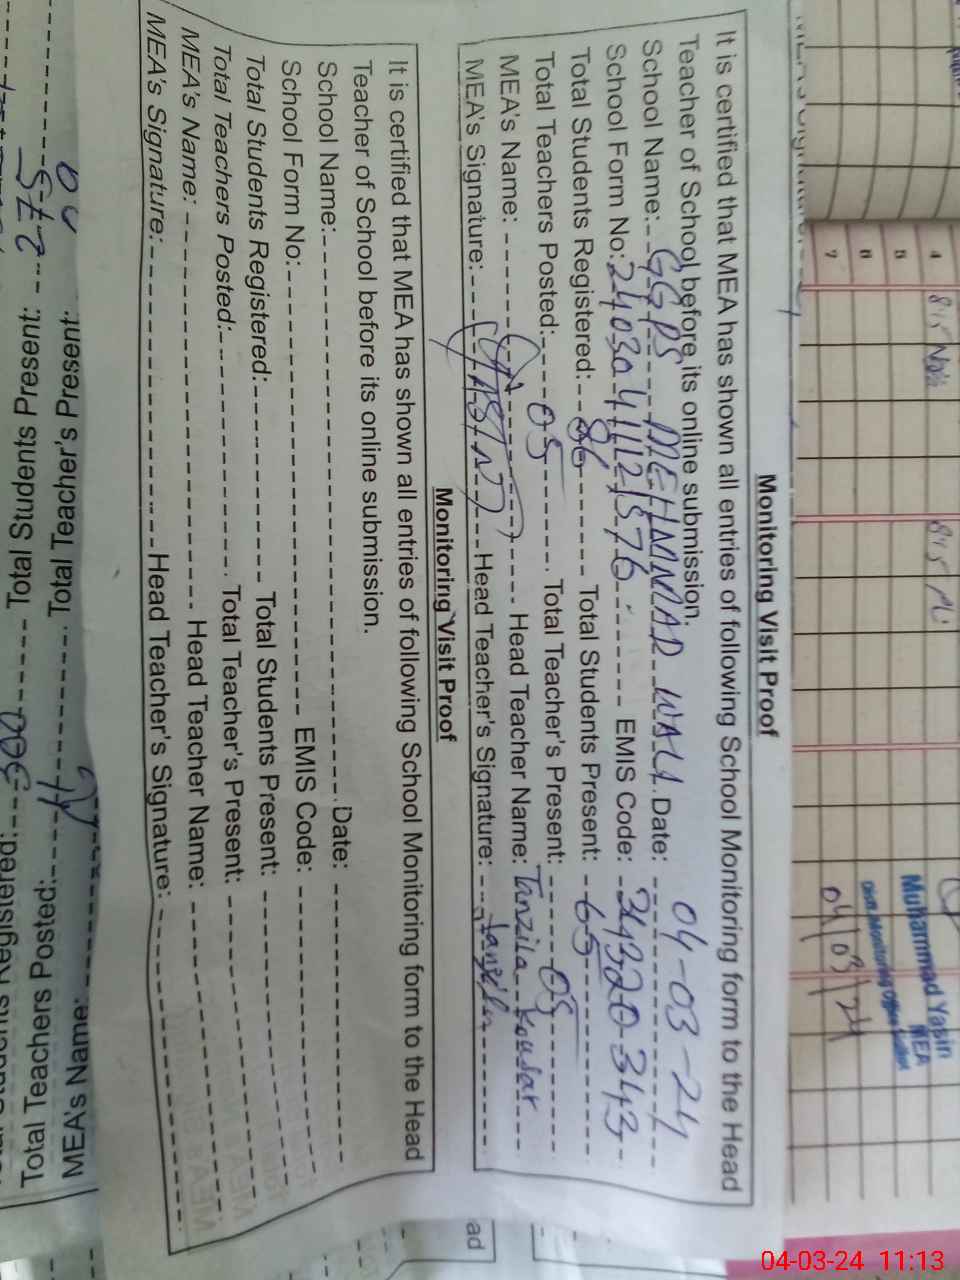 Monitoring Visit Proof
It is certified that MEA has shown all entries of following School Monitoring form to the Head
Teacher of School before its online submission.
School Name: GGPS MEHMMAD WALI Date: 04-03-24
School Form No: EMIS Code: 34320343
Total Students Registered: 86 Total Students Present: 65
Total Teachers Posted: 05 Total Teacher's Present: 05
MEA's Name: Head Teacher Name: Tanzila Kousar
MEA's Signature: (YASIN) Head Teacher's Signature: Tanzila
Monitoring Visit Proof
It is certified that MEA has shown all entries of following School Monitoring form to the Head
Teacher of School before its online submission.
School Name: Date:
School Form No: EMIS Code:
Total Students Registered: Total Students Present:
Total Teachers Posted: Total Teacher's Present:
MEA's Name: Head Teacher Name:
MEA's Signature: Head Teacher's Signature:
4
5
6
7
Muhammad Yasin
MEA
04/03/24
Registered: 300 Total Students Present:
Total Teachers Posted: Total Teacher's Present:
MEA's Name:
ad
04-03-24 11:13